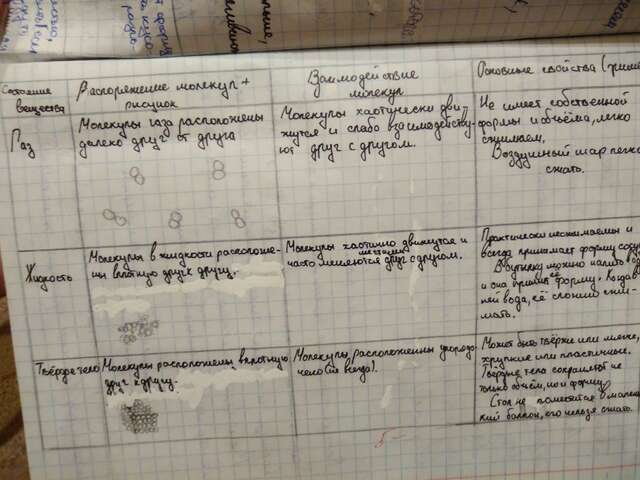 Состояние
вещества
Распоряжение молекул +
рисунок
Взаимодействие
молекул
Основные свойства
Газ
Молекулы газа расположены
далеко друг от друга
Молекулы хаотически дви-
жутся и слабо взаимодейству-
ют друг с другом.
Не имеет собственной
формы и объёма, легко
сжимаем.
Воздушный шар легко
сжать.
Жидкость
Молекулы в жидкости расположе-
ны вплотную друг к другу.
Молекулы хаотично движутся и
часто меняются местами друг с другом.
Практически несжимаемы и
всегда принимает форму
В бутылку можно налить
и она примет её форму. Когда в
ней вода, её сложно сжи-
мать.
Твёрдое тело
Молекулы расположены вплотную
друг к другу.
Молекулы расположенны упорядо-
чено (не всегда).
Может быть твёрже или мягче,
хрупкие или пластичные.
Твердые тела сохраняют не
только объём, но и форму.
Стол не поместится в малень-
кий балкон, его нельзя сжать.